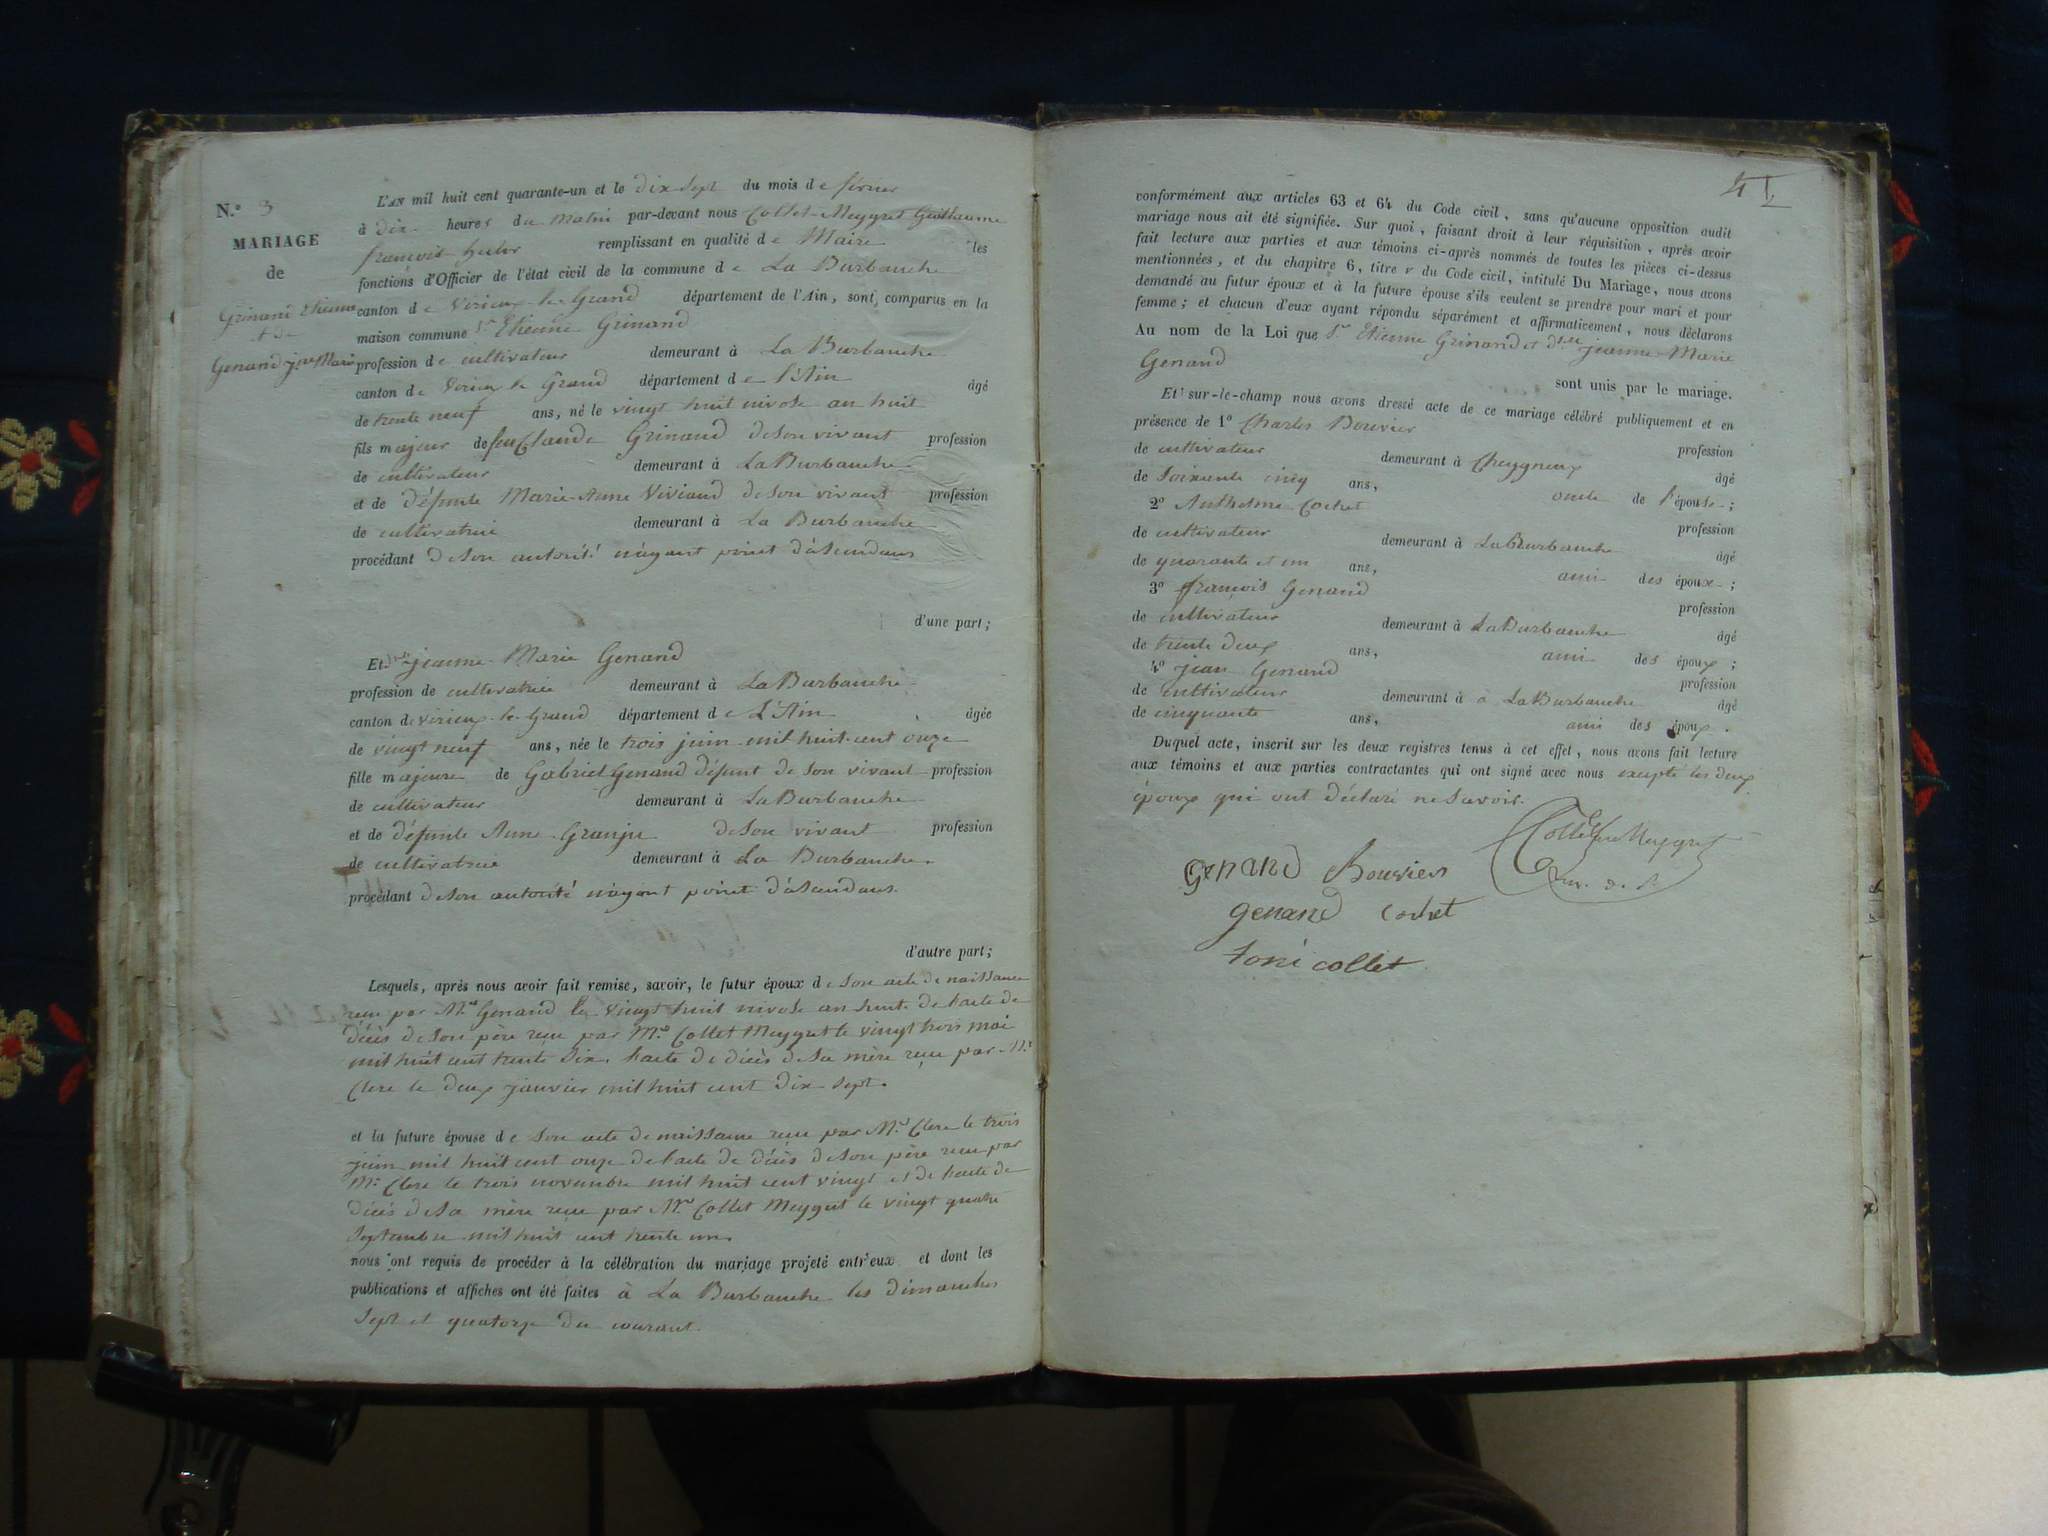 N.º 3
MARIAGE
de
Grinand Etienne
et de
Genand jne Marie
L'AN mil huit cent quarante-un et le dix Sept du mois de février
à dix heures du matin par-devant nous Collet-Meygret Guillaume
françois remplissant en qualité de Maire les
fonctions d'Officier de l'état civil de la commune de La Burbanche
canton de Virieux-le-Grand département de l'Ain, sont comparus en la
maison commune Sr Etienne Grinand
profession de cultivateur demeurant à La Burbanche
canton de Virieux le Grand département de l'Ain âgé
de trente neuf ans, né le vingt huit nivose an huit
fils majeur de feu Claude Grinand de Son vivant profession
de cultivateur demeurant à La Burbanche
et de défunte Marie-Anne Viviand de Son vivant profession
de cultivatrice demeurant à La Burbanche
procédant de Son autorité n'ayant point d'ascendans
d'une part;
Et dlle jeanne Marie Genand
profession de cultivatrice demeurant à La Burbanche
canton de Virieux-le-Grand département de L'Ain âgée
de vingt neuf ans, née le trois juin mil huit-cent onze
fille majeure de Gabriel Genand défunt de Son vivant profession
de cultivateur demeurant à La Burbanche
et de défunte Anne Granju de Son vivant profession
de cultivatrice demeurant à La Burbanche.
procédant de Son autorité n'ayant point d'ascendans.
d'autre part;
Lesquels, après nous avoir fait remise, savoir, le futur époux de Son acte de naissance
reçu par Mre Genand le vingt huit nivose an huit de l'acte de
décès de Son père reçu par Mre Collet Meygret le vingt trois mai
mil huit cent trente Six. l'acte de décès de Sa mère reçu par Mr
Clerc le deux janvier mil huit cent dix-Sept.
et la future épouse de Son acte de naissance reçu par Mre Clerc le trois
juin mil huit cent onze de l'acte de décès de Son père reçu par
Mr Clerc le trois novembre mil huit cent vingt et de l'acte de
décès de Sa mère reçu par Mre Collet Meygret le vingt quatre
Septembre mil huit cent trente un.
nous ont requis de procéder à la célébration du mariage projeté entr'eux et dont les
publications et affiches ont été faites à La Burbanche les dimanches
Sept et quatorze du courant.
4
conformément aux articles 63 et 64 du Code civil, sans qu'aucune opposition audit
mariage nous ait été signifiée. Sur quoi, faisant droit à leur réquisition, après avoir
fait lecture aux parties et aux témoins ci-après nommés de toutes les pièces ci-dessus
mentionnées, et du chapitre 6, titre v du Code civil, intitulé Du Mariage, nous avons
demandé au futur époux et à la future épouse s'ils veulent se prendre pour mari et pour
femme; et chacun d'eux ayant répondu séparément et affirmativement, nous déclarons
Au nom de la Loi que Sr Etienne Grinand et dlle jeanne-Marie
Genand
sont unis par le mariage.
Et sur-le-champ nous avons dressé acte de ce mariage célébré publiquement et en
présence de 1º Charles Bouvier
profession
de cultivateur demeurant à Cheygneux
âgé
de Soixante cinq ans, oncle de l'épouse;
2º Anthelme Cochet
profession
de cultivateur demeurant à La Burbanche
âgé
de quarante et un ans, ami des époux;
3º françois Genand
profession
de cultivateur demeurant à La Burbanche
âgé
de trente deux ans, ami des époux;
4º jean Genand
profession
de cultivateur demeurant à à La Burbanche
âgé
de cinquante ans, ami des époux.
Duquel acte, inscrit sur les deux registres tenus à cet effet, nous avons fait lecture
aux témoins et aux parties contractantes qui ont signé avec nous excepté les deux
époux qui ont déclaré ne Savoir.
Collet Meygret
Genand Bouvier
genand Cochet
toni collet